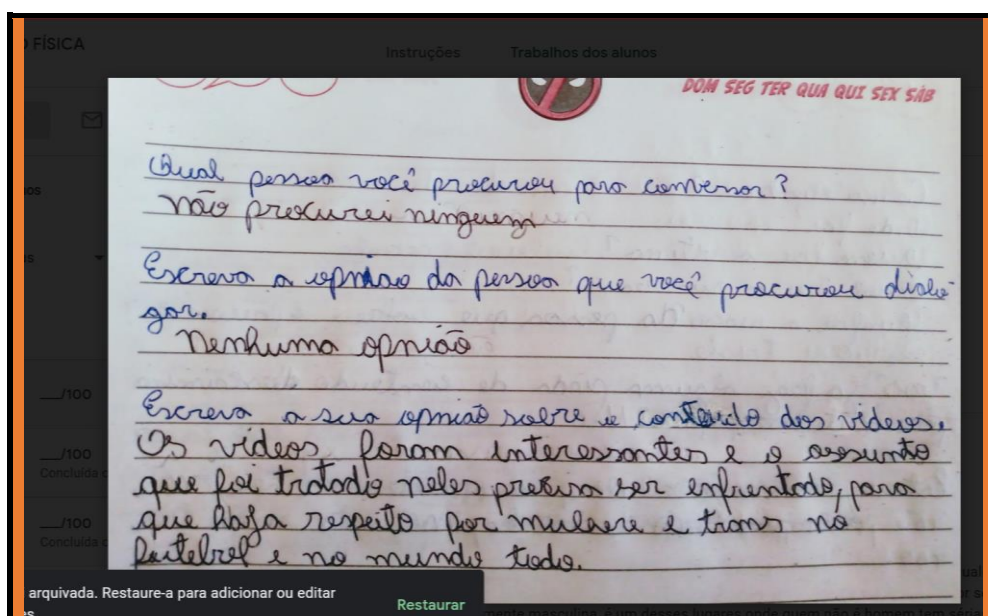 FÍSICA
Instruções Trabalhos dos alunos
DOM SEG TER QUA QUI SEX SÁB
Qual pessoa você procurou para conversar?
não procurei ninguem
Escreva a opnião da pessoa que você procurou dialo-
gar.
Nenhuma opnião
__/100
Escreva a sua opnião sobre o conteudo dos videos.
Os videos foram interessantes e o assunto
__/100
Concluída
que foi tratado neles precisa ser enfrentado, para
que haja respeito por mulhere e trans no
__/100
Concluída
futebol e no mundo todo.
arquivada. Restaure-a para adicionar ou editar
Restaurar